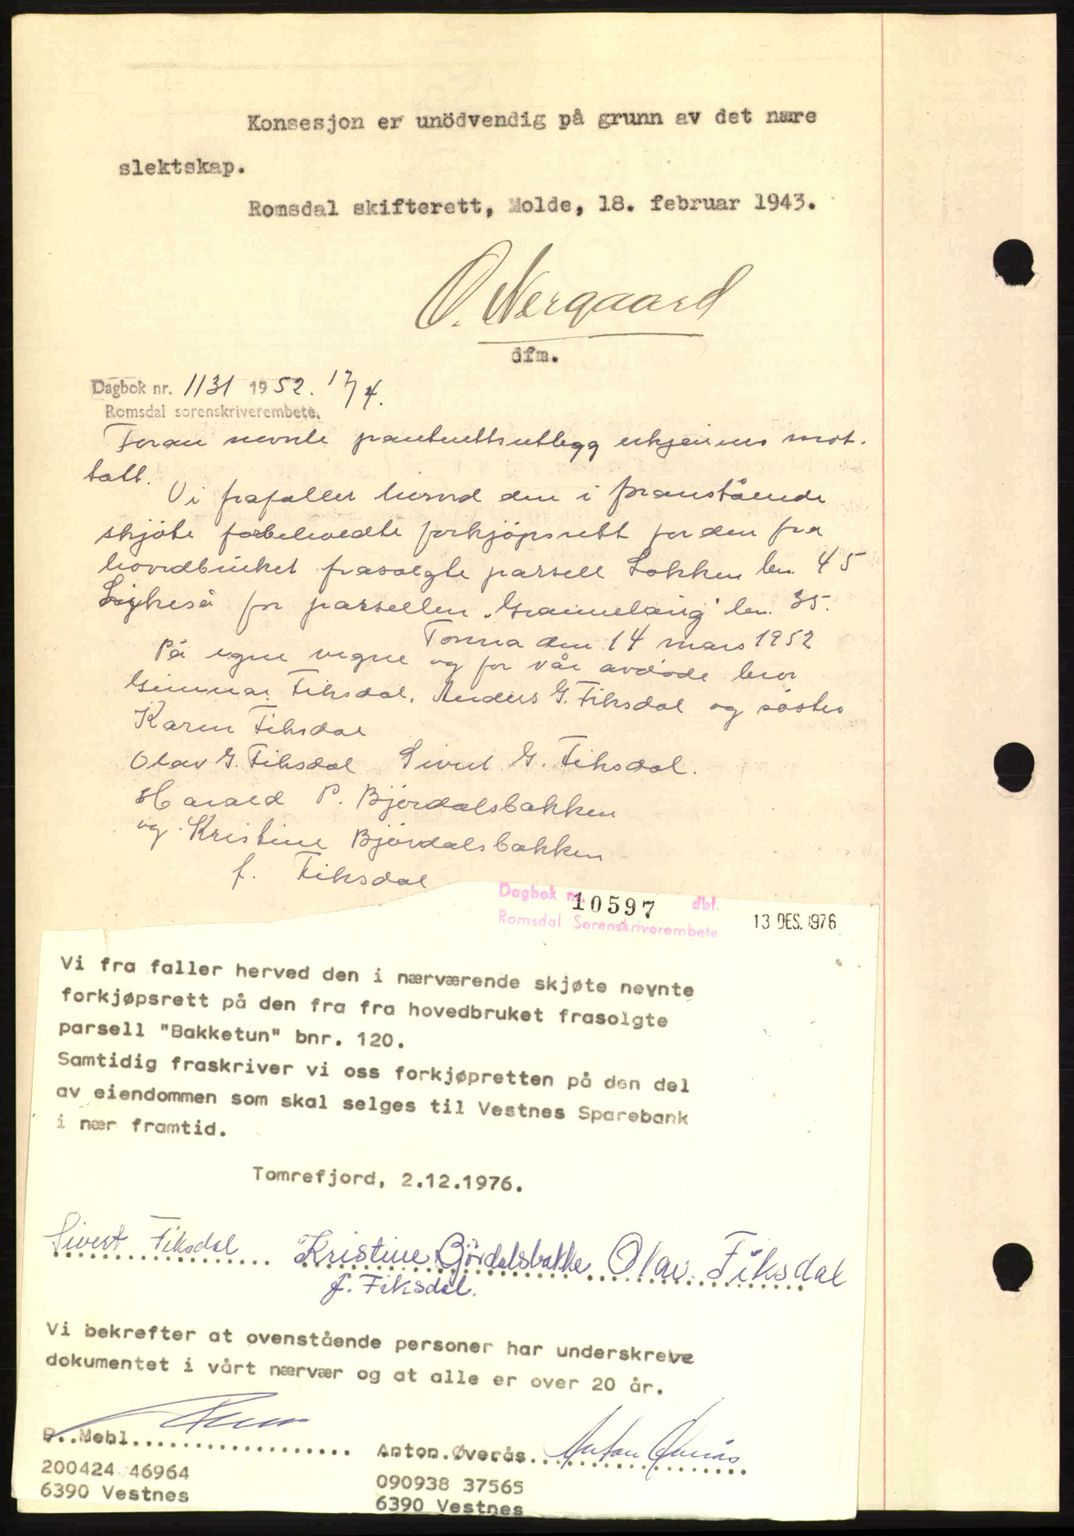 Konsesjon er unödvendig på grunn av det nære
slektskap.
Romsdal skifterett, Molde, 18. februar 1943.
O. Nergaard
dfm.
Dagbok nr. 1131 1952. 17/4.
Romsdal sorenskriverembete.
Foran nevnte panterettsutlegg erkjennes mot-
tatt.
Vi frafaller herved den i foranstående
skjöte forbeholdte forkjöpsrett for den fra
hovedbruket frasolgte parsell Løkken bn. 45
Likeså for parsellen „Grannelæng" bn. 35.
Tomra den 14 mars 1952
På egne vegne og for vår avdøde bror
Gunnar Fiksdal, Anders G. Fiksdal og søster
Karen Fiksdal
Olav G. Fiksdal Sivert G. Fiksdal.
Harald P. Bjørdalsbakken
og Kristine Bjørdalsbakken
f. Fiksdal
Dagbok nr. 10597 dbf. 13 DES. 1976
Romsdal Sorenskriverembete
Vi fra faller herved den i nærværende skjøte nevnte
forkjøpsrett på den fra fra hovedbruket frasolgte
parsell "Bakketun" bnr. 120.
Samtidig fraskriver vi oss forkjøpretten på den del
av eiendommen som skal selges til Vestnes Sparebank
i nær framtid.
Tomrefjord, 2.12.1976.
Sivert Fiksdal Kristine Björdalsbakke Olav. Fiksdal
f. Fiksdal.
Vi bekrefter at ovenstående personer har underskreve
dokumentet i vårt nærvær og at alle er over 20 år.
P. Mehl
Anton Øverås. Anton Øverås
200424 46964
090938 37565
6390 Vestnes
6390 Vestnes